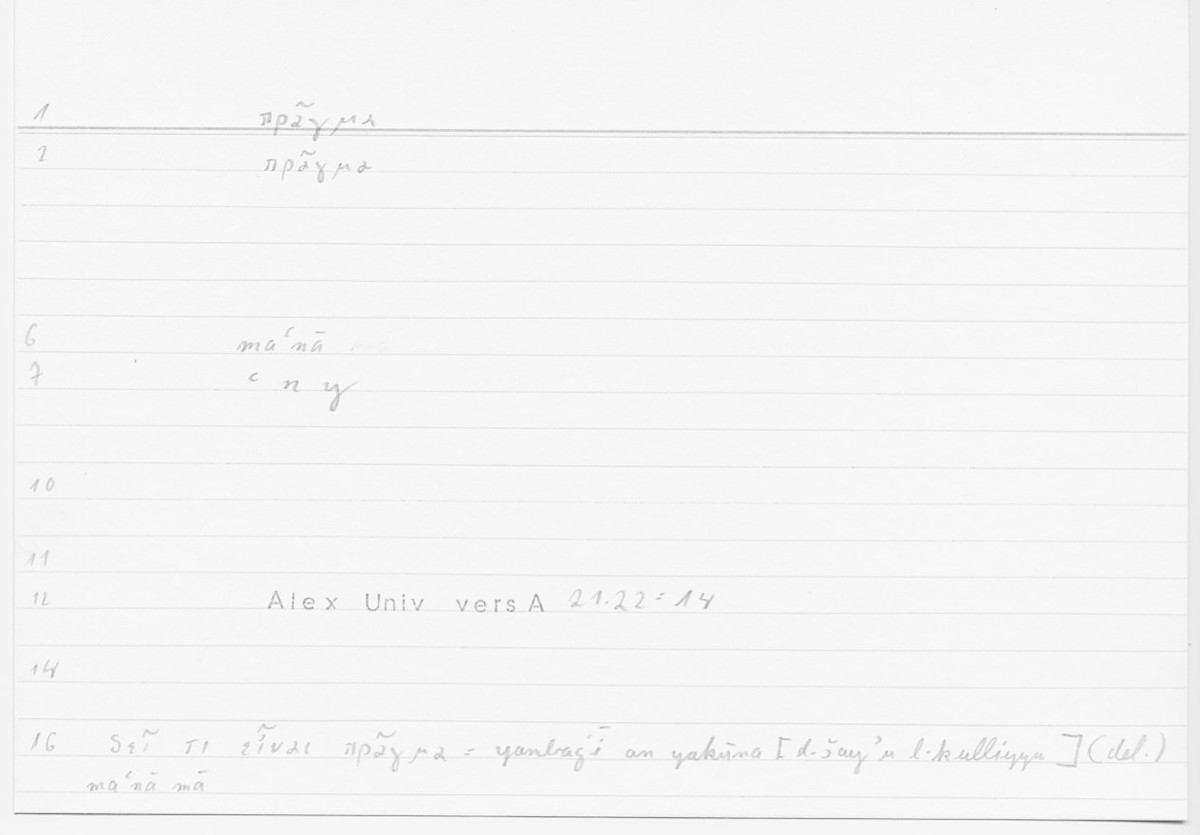 1 πρᾶγμα
2 πρᾶγμα
6 maʿnā
7 ʿ n y
10
11
12 Alex Univ vers A 21.22 = 14
14
16 δεῖ τι εἶναι πρᾶγμα = yanbaġī an yakūna [d-šayʾu l-kulliyyu] (del.)
maʿnā mā